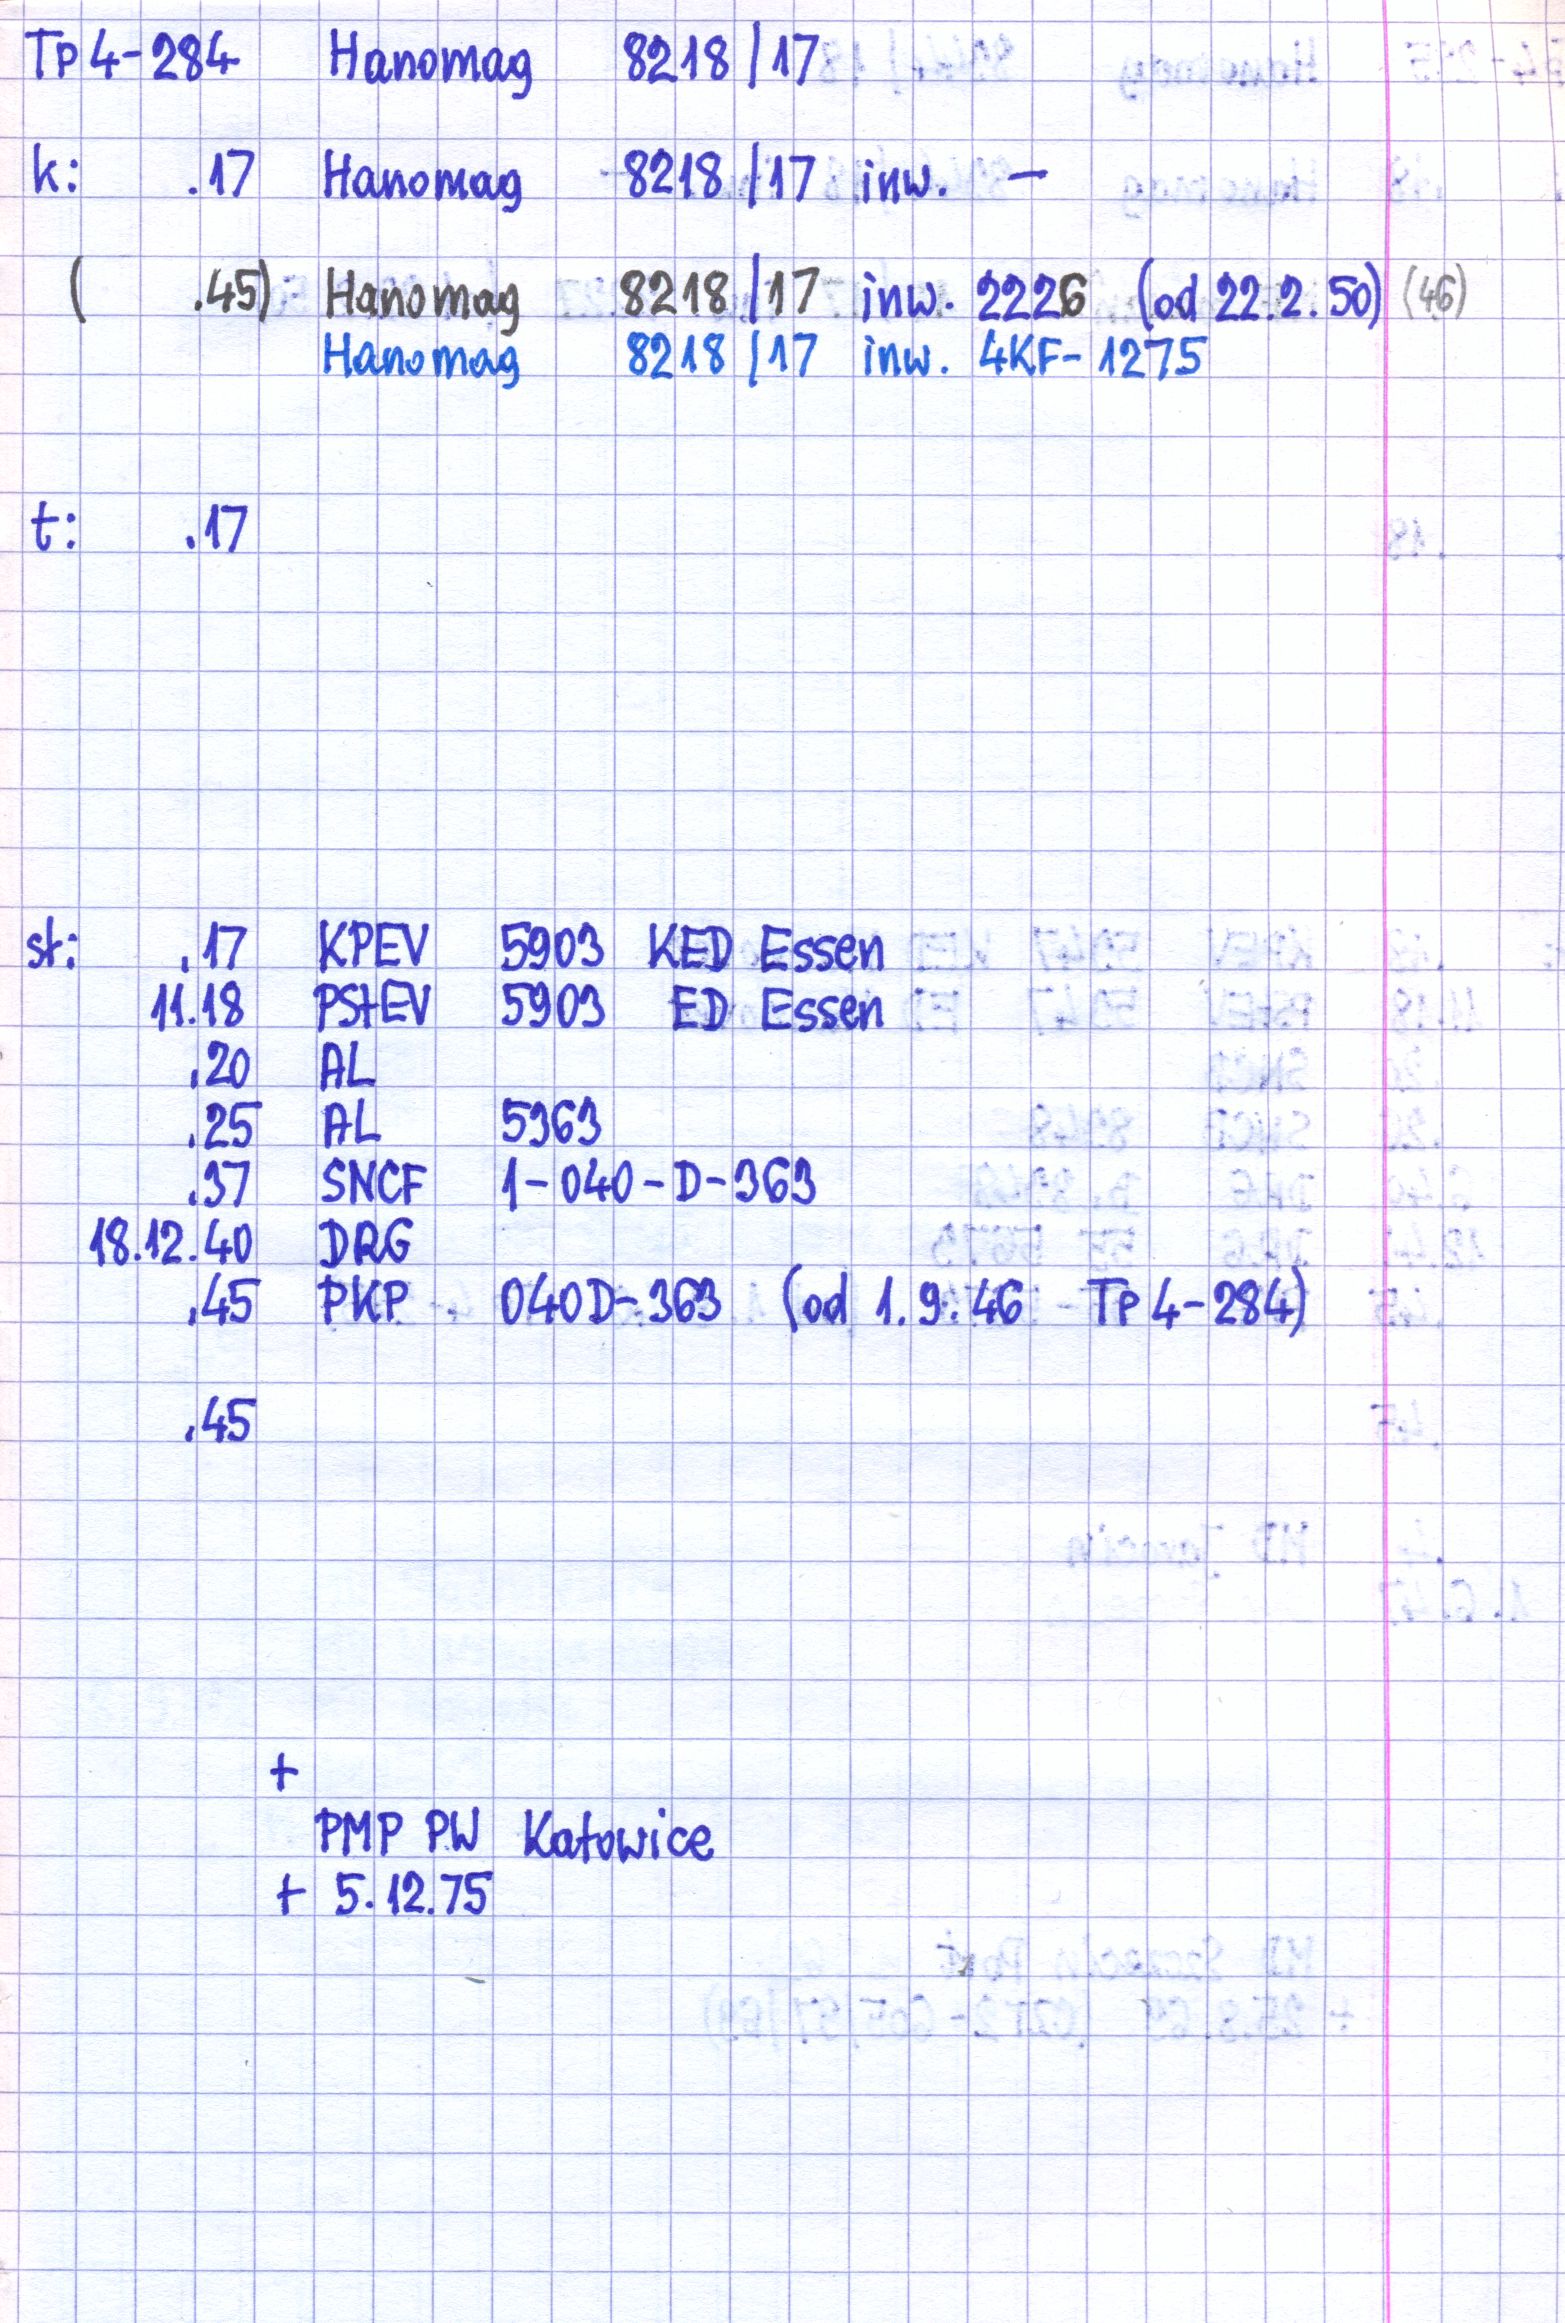 Tp4-284 Hanomag 8218/17
k: .17 Hanomag 8218/17 inw. –
( .45) Hanomag 8218/17 inw. 2226 (od 22.2.50) (46)
Hanomag 8218/17 inw. 4KF-1275
t: .17
st: .17 KPEV 5903 KED Essen
11.18 PStEV 5903 ED Essen
.20 AL
.25 AL 5363
.37 SNCF 1-040-D-363
18.12.40 DRG
.45 PKP 040D-363 (od 1.9.46 Tp4-284)
.45
+
PMP PW Katowice
+ 5.12.75